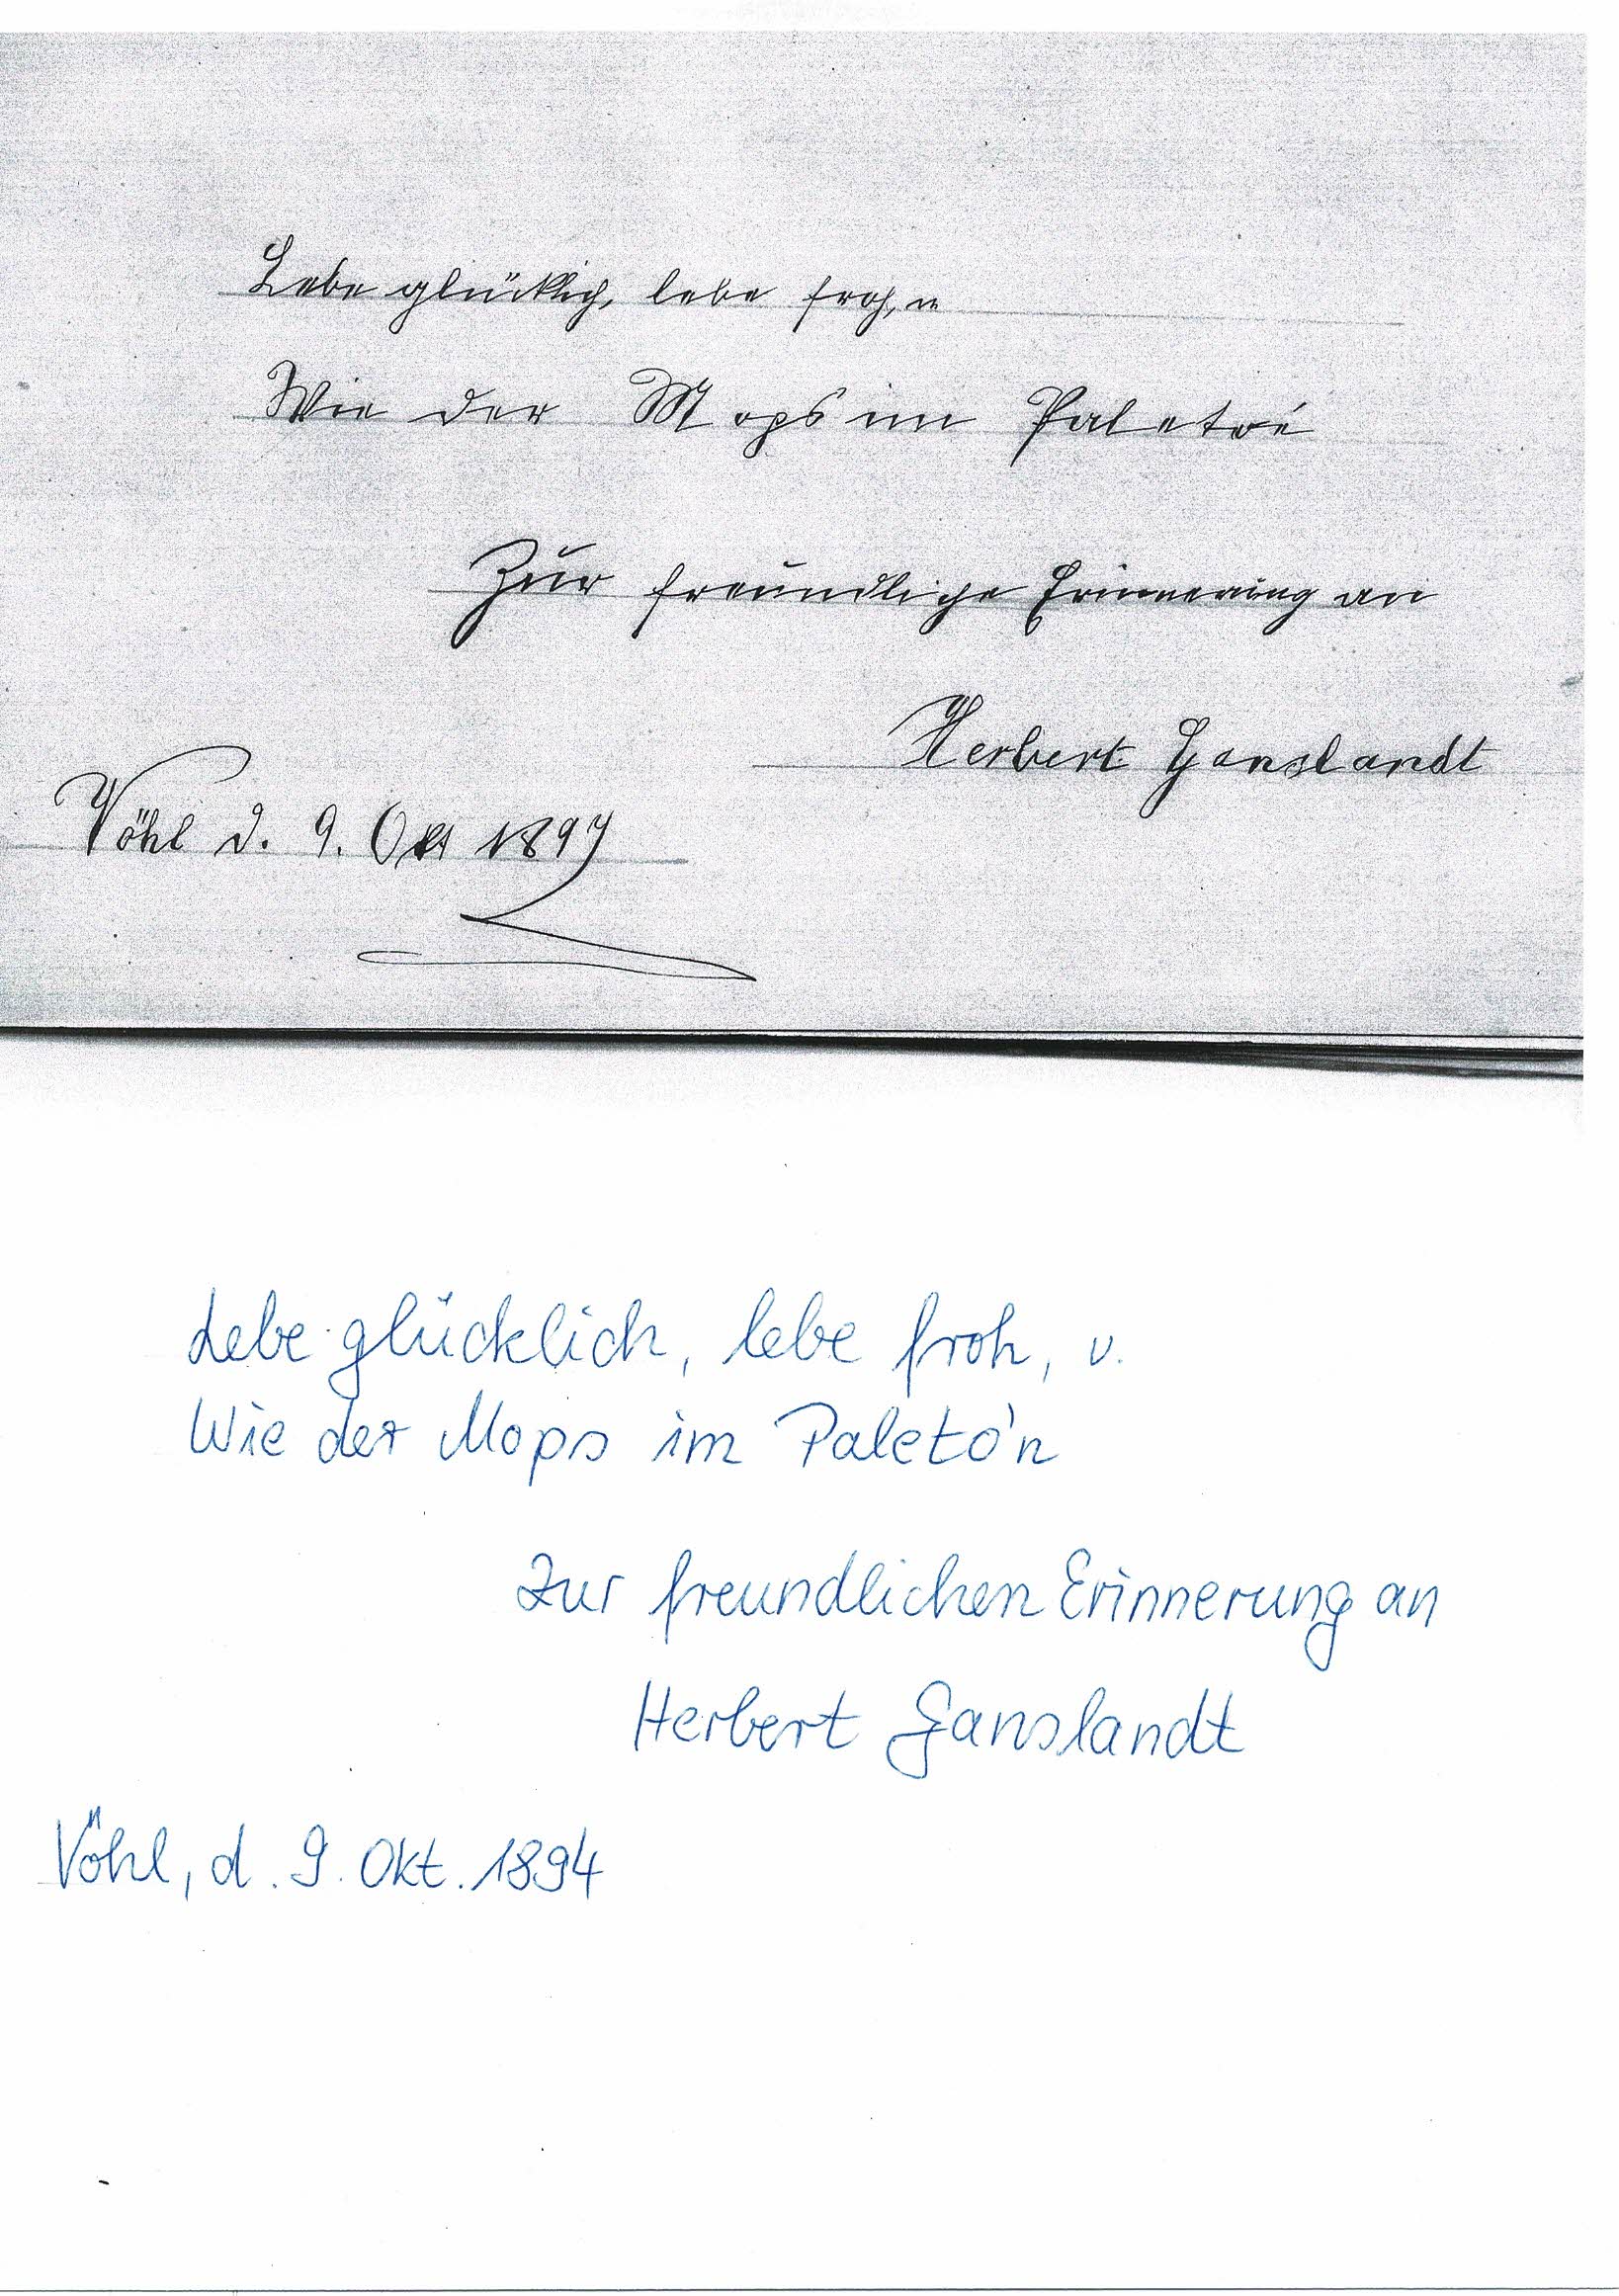 Lebe glücklich, lebe froh, u
Wie der Mops im Paletó
Zur freundliche Erinnerung an
Herbert Ganslandt
Vöhl d. 9. Okt 1894
Lebe glücklich, lebe froh, v.
Wie der Mops im Paletó'n
Zur freundlichen Erinnerung an
Herbert Ganslandt
Vöhl, d. 9. Okt. 1894